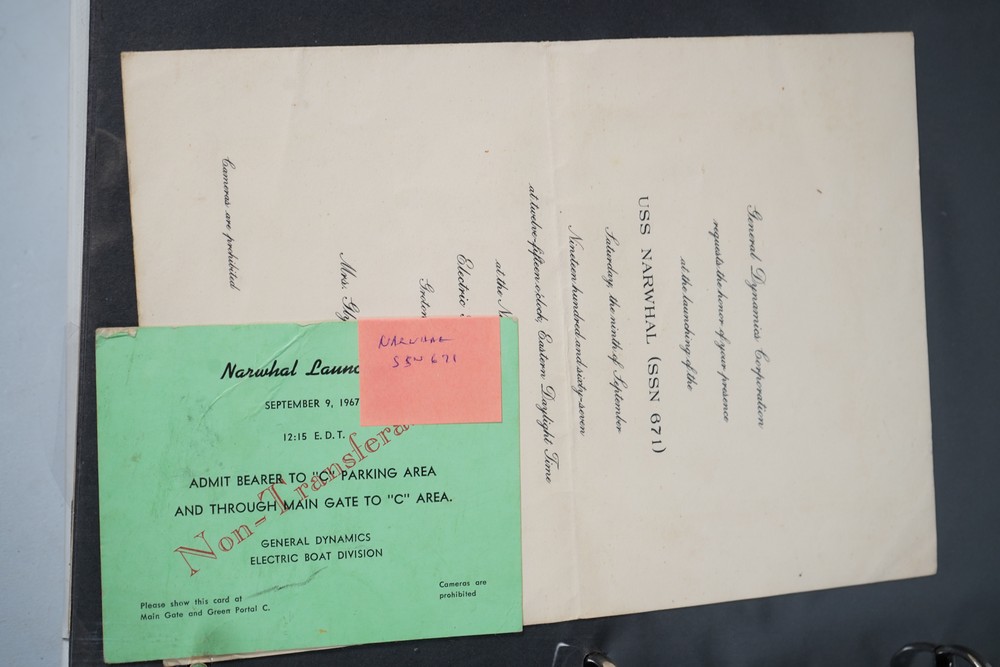 General Dynamics Corporation
requests the honor of your presence
at the launching of the
USS NARWHAL (SSN 671)
Saturday, the ninth of September
Nineteen hundred and sixty-seven
at twelve-fifteen o'clock, Eastern Daylight Time
at the
Electric
Mrs.
Cameras are prohibited
NARWHAL
SSN 671
Narwhal
SEPTEMBER 9, 1967
12:15 E. D. T.
ADMIT BEARER TO "C" PARKING AREA
AND THROUGH MAIN GATE TO "C" AREA.
Non-Transfera
GENERAL DYNAMICS
ELECTRIC BOAT DIVISION
Please show this card at
Main Gate and Green Portal C.
Cameras are
prohibited